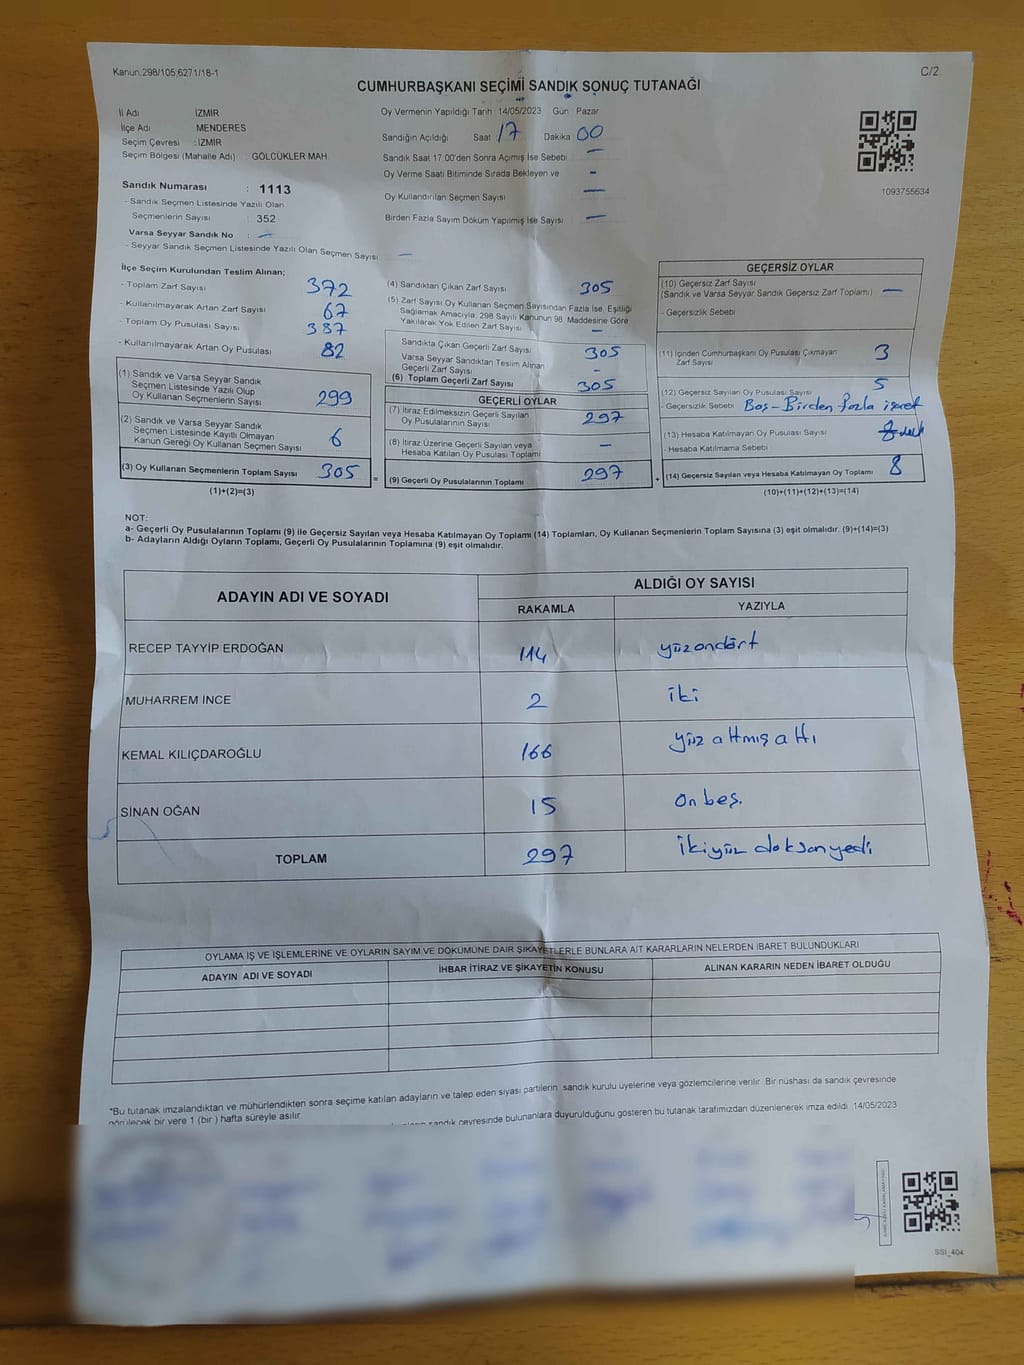 Kanun:298/105,6271/18-1
C/2
CUMHURBAŞKANI SEÇİMİ SANDIK SONUÇ TUTANAĞI
İl Adı İZMİR
İlçe Adı MENDERES
Seçim Çevresi : İZMİR
Seçim Bölgesi (Mahalle Adı) : GÖLCÜKLER MAH.
Sandık Numarası : 1113
- Sandık Seçmen Listesinde Yazılı Olan
Seçmenlerin Sayısı : 352
Varsa Seyyar Sandık No : —
- Seyyar Sandık Seçmen Listesinde Yazılı Olan Seçmen Sayısı : —
Oy Vermenin Yapıldığı Tarih 14/05/2023 Gün Pazar
Sandığın Açıldığı Saat 17 Dakika 00
Sandık Saat 17.00'den Sonra Açımış İse Sebebi —
Oy Verme Saati Bitiminde Sırada Bekleyen ve -
Oy Kullandırılan Seçmen Sayısı —
Birden Fazla Sayım Döküm Yapılmış İse Sayısı —
1093755634
İlçe Seçim Kurulundan Teslim Alınan;
- Toplam Zarf Sayısı 372
- Kullanılmayarak Artan Zarf Sayısı 67
- Toplam Oy Pusulası Sayısı 387
- Kullanılmayarak Artan Oy Pusulası 82
(1) Sandık ve Varsa Seyyar Sandık
Seçmen Listesinde Yazılı Olup
Oy Kullanan Seçmenlerin Sayısı 299
(2) Sandık ve Varsa Seyyar Sandık
Seçmen Listesinde Kayıtlı Olmayan
Kanun Gereği Oy Kullanan Seçmen Sayısı 6
(3) Oy Kullanan Seçmenlerin Toplam Sayısı 305 =
(1)+(2)=(3)
(4) Sandıktan Çıkan Zarf Sayısı 305
(5) Zarf Sayısı Oy Kullanan Seçmen Sayısından Fazla İse, Eşitliği
Sağlamak Amacıyla, 298 Sayılı Kanunun 98. Maddesine Göre
Yakılarak Yok Edilen Zarf Sayısı —
Sandıkta Çıkan Geçerli Zarf Sayısı 305
Varsa Seyyar Sandıktan Teslim Alınan
Geçerli Zarf Sayısı -
(6) Toplam Geçerli Zarf Sayısı 305
GEÇERLİ OYLAR
(7) İtiraz Edilmeksizin Geçerli Sayılan
Oy Pusulasının Sayısı 297
(8) İtiraz Üzerine Geçerli Sayılan veya
Hesaba Katılan Oy Pusulası Toplamı —
(9) Geçerli Oy Pusulalarının Toplamı 297 +
GEÇERSİZ OYLAR
(10) Geçersiz Zarf Sayısı
(Sandık ve Varsa Seyyar Sandık Geçersiz Zarf Toplamı) —
- Geçersizlik Sebebi
(11) İçinden Cumhurbaşkanı Oy Pusulası Çıkmayan
Zarf Sayısı 3
(12) Geçersiz Sayılan Oy Pusulası Sayısı 5
- Geçersizlik Sebebi Boş - Birden fazla işaret
(13) Hesaba Katılmayan Oy Pusulası Sayısı
- Hesaba Katılmama Sebebi
(14) Geçersiz Sayılan veya Hesaba Katılmayan Oy Toplamı 8
(10)+(11)+(12)+(13)=(14)
NOT:
a- Geçerli Oy Pusulalarının Toplamı (9) ile Geçersiz Sayılan veya Hesaba Katılmayan Oy Toplamı (14) Toplamları, Oy Kullanan Seçmenlerin Toplam Sayısına (3) eşit olmalıdır. (9)+(14)=(3)
b- Adayların Aldığı Oyların Toplamı, Geçerli Oy Pusulalarının Toplamına (9) eşit olmalıdır.
ADAYIN ADI VE SOYADI
ALDIĞI OY SAYISI
RAKAMLA YAZIYLA
RECEP TAYYİP ERDOĞAN 114 yüzondört
MUHARREM İNCE 2 iki
KEMAL KILIÇDAROĞLU 166 yüz altmış altı
SİNAN OĞAN 15 on beş.
TOPLAM 297 ikiyüz doksanyedi
OYLAMA İŞ VE İŞLEMLERİNE VE OYLARIN SAYIM VE DÖKÜMÜNE DAİR ŞİKAYETLERLE BUNLARA AİT KARARLARIN NELERDEN İBARET BULUNDUKLARI
ADAYIN ADI VE SOYADI İHBAR İTİRAZ VE ŞİKAYETİN KONUSU ALINAN KARARIN NEDEN İBARET OLDUĞU
*Bu tutanak imzalandıktan ve mühürlendikten sonra seçime katılan adayların ve talep eden siyasi partilerin sandık kurulu üyelerine veya gözlemcilerine verilir. Bir nüshası da sandık çevresinde
görülecek bir yere 1 (bir) hafta süreyle asılır.
sandık çevresinde bulunanlara duyurulduğunu gösteren bu tutanak tarafımızdan düzenlenerek imza edildi. 14/05/2023
SSI_404